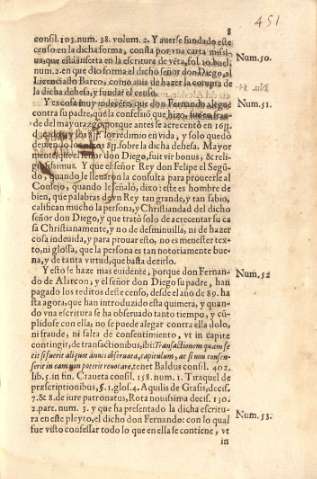 451
8
consil. 103. num. 38. volum. 2. Y auerse fundado este
censo en la dicha forma, consta por vna carta
que está inserta en la escritura de vēta, fol. 10. buel.
num. 2. en que dio forma el dicho señor don Diego, al
Licenciado Barco, como auia de hazer la compra de
la dicha dehesa, y fundar el censo.
Num. 50.
Y es cosa muy indecēte, que don Fernando alegue
contra su padre, que la confession que hizo,
de del mayorazgo, porque antes le acrecentò en
redimio en vida, y solo quedò
sobre la dicha dehesa. Mayor
don Diego, fuit vir bonus, & reli-
Y que el señor Rey don Felipe el Segū-
do, quando le lleuaron la consulta para prouerle al
Consejo, quando le señalò, dixo: este es hombre de
bien, que palabras de vn Rey tan grande, y tan sabio,
califican mucho la persona, y Christiandad del dicho
señor don Diego, y que tratò solo de acrecentar su ca
sa Christianamente, y no de desminuilla, ni de hazer
cosa indeuida, y para prouar esto, no es menester tex-
to, ni glossa, que la persona es tan notoriamente bue-
na, y de tanta virtud, que basta dezirlo.
Num. 51.
Y esto se haze mas euidente, porque don Fernan-
do de Alarcon, y el señor don Diego su padre, han
pagado los reditos deste censo, desde el año de 89. ha
sta agora, que han introducido esta quimera, y quan-
do vna escritura se ha obseruado tanto tiempo, y cū-
plidose con ella; no se puede alegar contra ella dolo,
ni fraude, ni falta de consentimiento, vt in capite
contingit, de transactionibus, ibi: Transactionem quam se
cit si fuerit aliquot annis obseruata, capitulum, ac si non consen-
serit in eam non poterit reuocare, tenet Baldus consil. 402.
lib. 5. in fin. Craueta consil. 158. num. 1. Tiraquel de
prescriptionibus, §. 1. glos. 4. Aquilis de Grasis, decis.
7. & 8. de iure patronatus, Rota nouissima decis. 130.
2. part. num. 3. y que ha presentado la dicha escritu-
ra en este pleyto, el dicho don Fernando: con lo qual
fue visto confessar todo lo que en ella se contiene, vt
in
Num. 52
Num. 53.